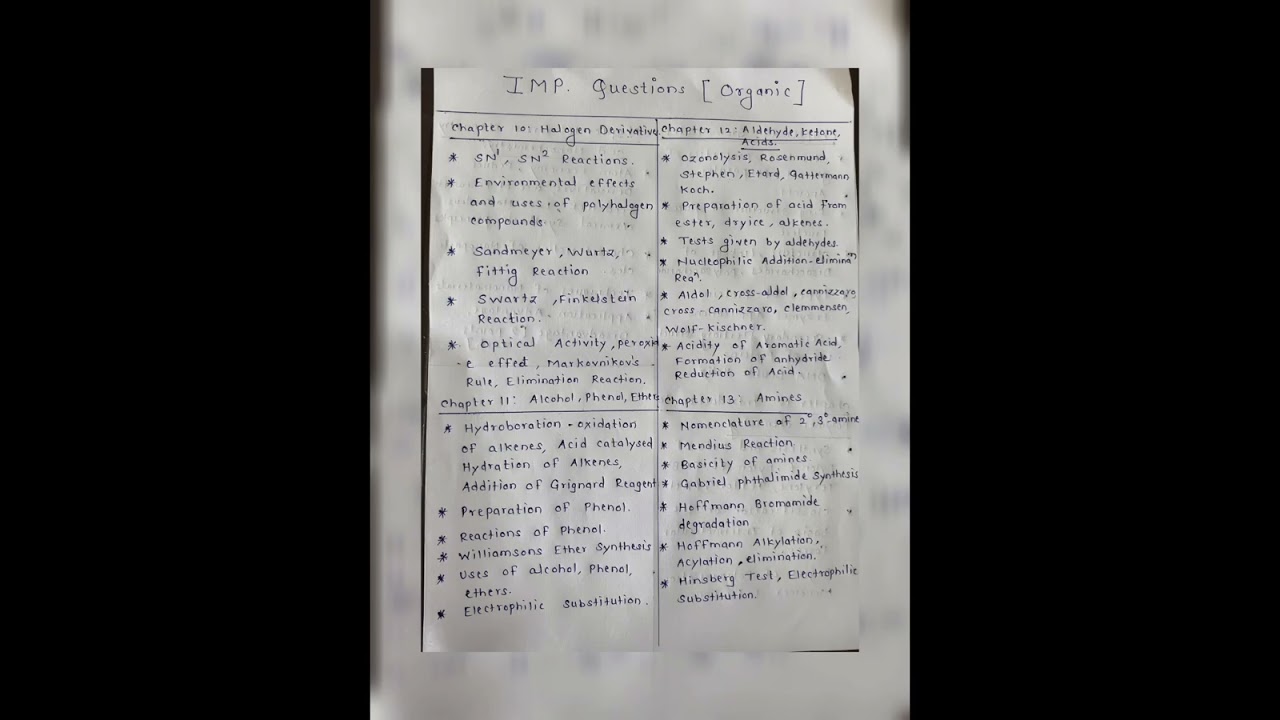 IMP. Questions [Organic]
Chapter 10: Halogen Derivative
* SN1, SN2 Reactions.
* Environmental effects
and uses of polyhalogen
compounds.
* Sandmeyer, Wurtz,
Fittig Reaction
* Swartz, Finkelstein
Reaction.
* Optical Activity, peroxid
e effect, Markovnikov's
Rule, Elimination Reaction.
Chapter 11: Alcohol, Phenol, Ethers
* Hydroboration-oxidation
of alkenes, Acid catalysed
Hydration of Alkenes,
Addition of Grignard Reagent
* Preparation of Phenol.
* Reactions of Phenol.
* Williamsons Ether Synthesis
* Uses of alcohol, Phenol,
ethers.
* Electrophilic Substitution.
Chapter 12: Aldehyde, Ketone,
Acids.
* Ozonolysis, Rosenmund,
Stephen, Etard, Gattermann
Koch.
* Preparation of acid from
ester, dryice, alkenes.
* Tests given by aldehydes.
* Nucleophilic Addition-eliminan
Reqn.
* Aldol, cross-aldol, cannizzaro
cross-cannizzaro, clemmensen,
Wolf-Kischner.
* Acidity of Aromatic Acid,
Formation of anhydride
Reduction of Acid.
Chapter 13: Amines
* Nomenclature of 2°,3°-amine
* Mendius Reaction
* Basicity of amines
* Gabriel phthalimide Synthesis
* Hoffmann Bromamide
degradation
* Hoffmann Alkylation,
Acylation, elimination.
* Hinsberg Test, Electrophilic
Substitution.